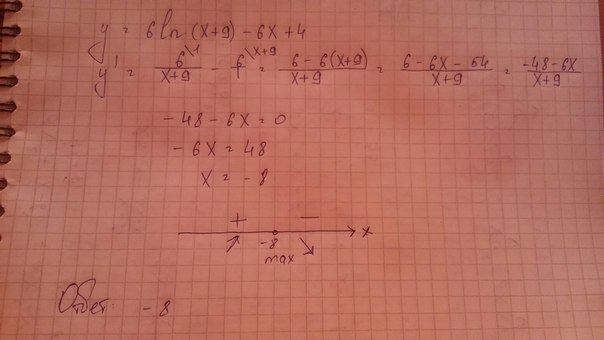 y = 6 ln (x+9) - 6x + 4
y' = 6\1/(x+9) - 6\x+9 = (6 - 6(x+9))/(x+9) = (6 - 6x - 54)/(x+9) = (-48 - 6x)/(x+9)
-48 - 6x = 0
-6x = 48
x = -8
+ —
-8 x
max
Ответ: -8